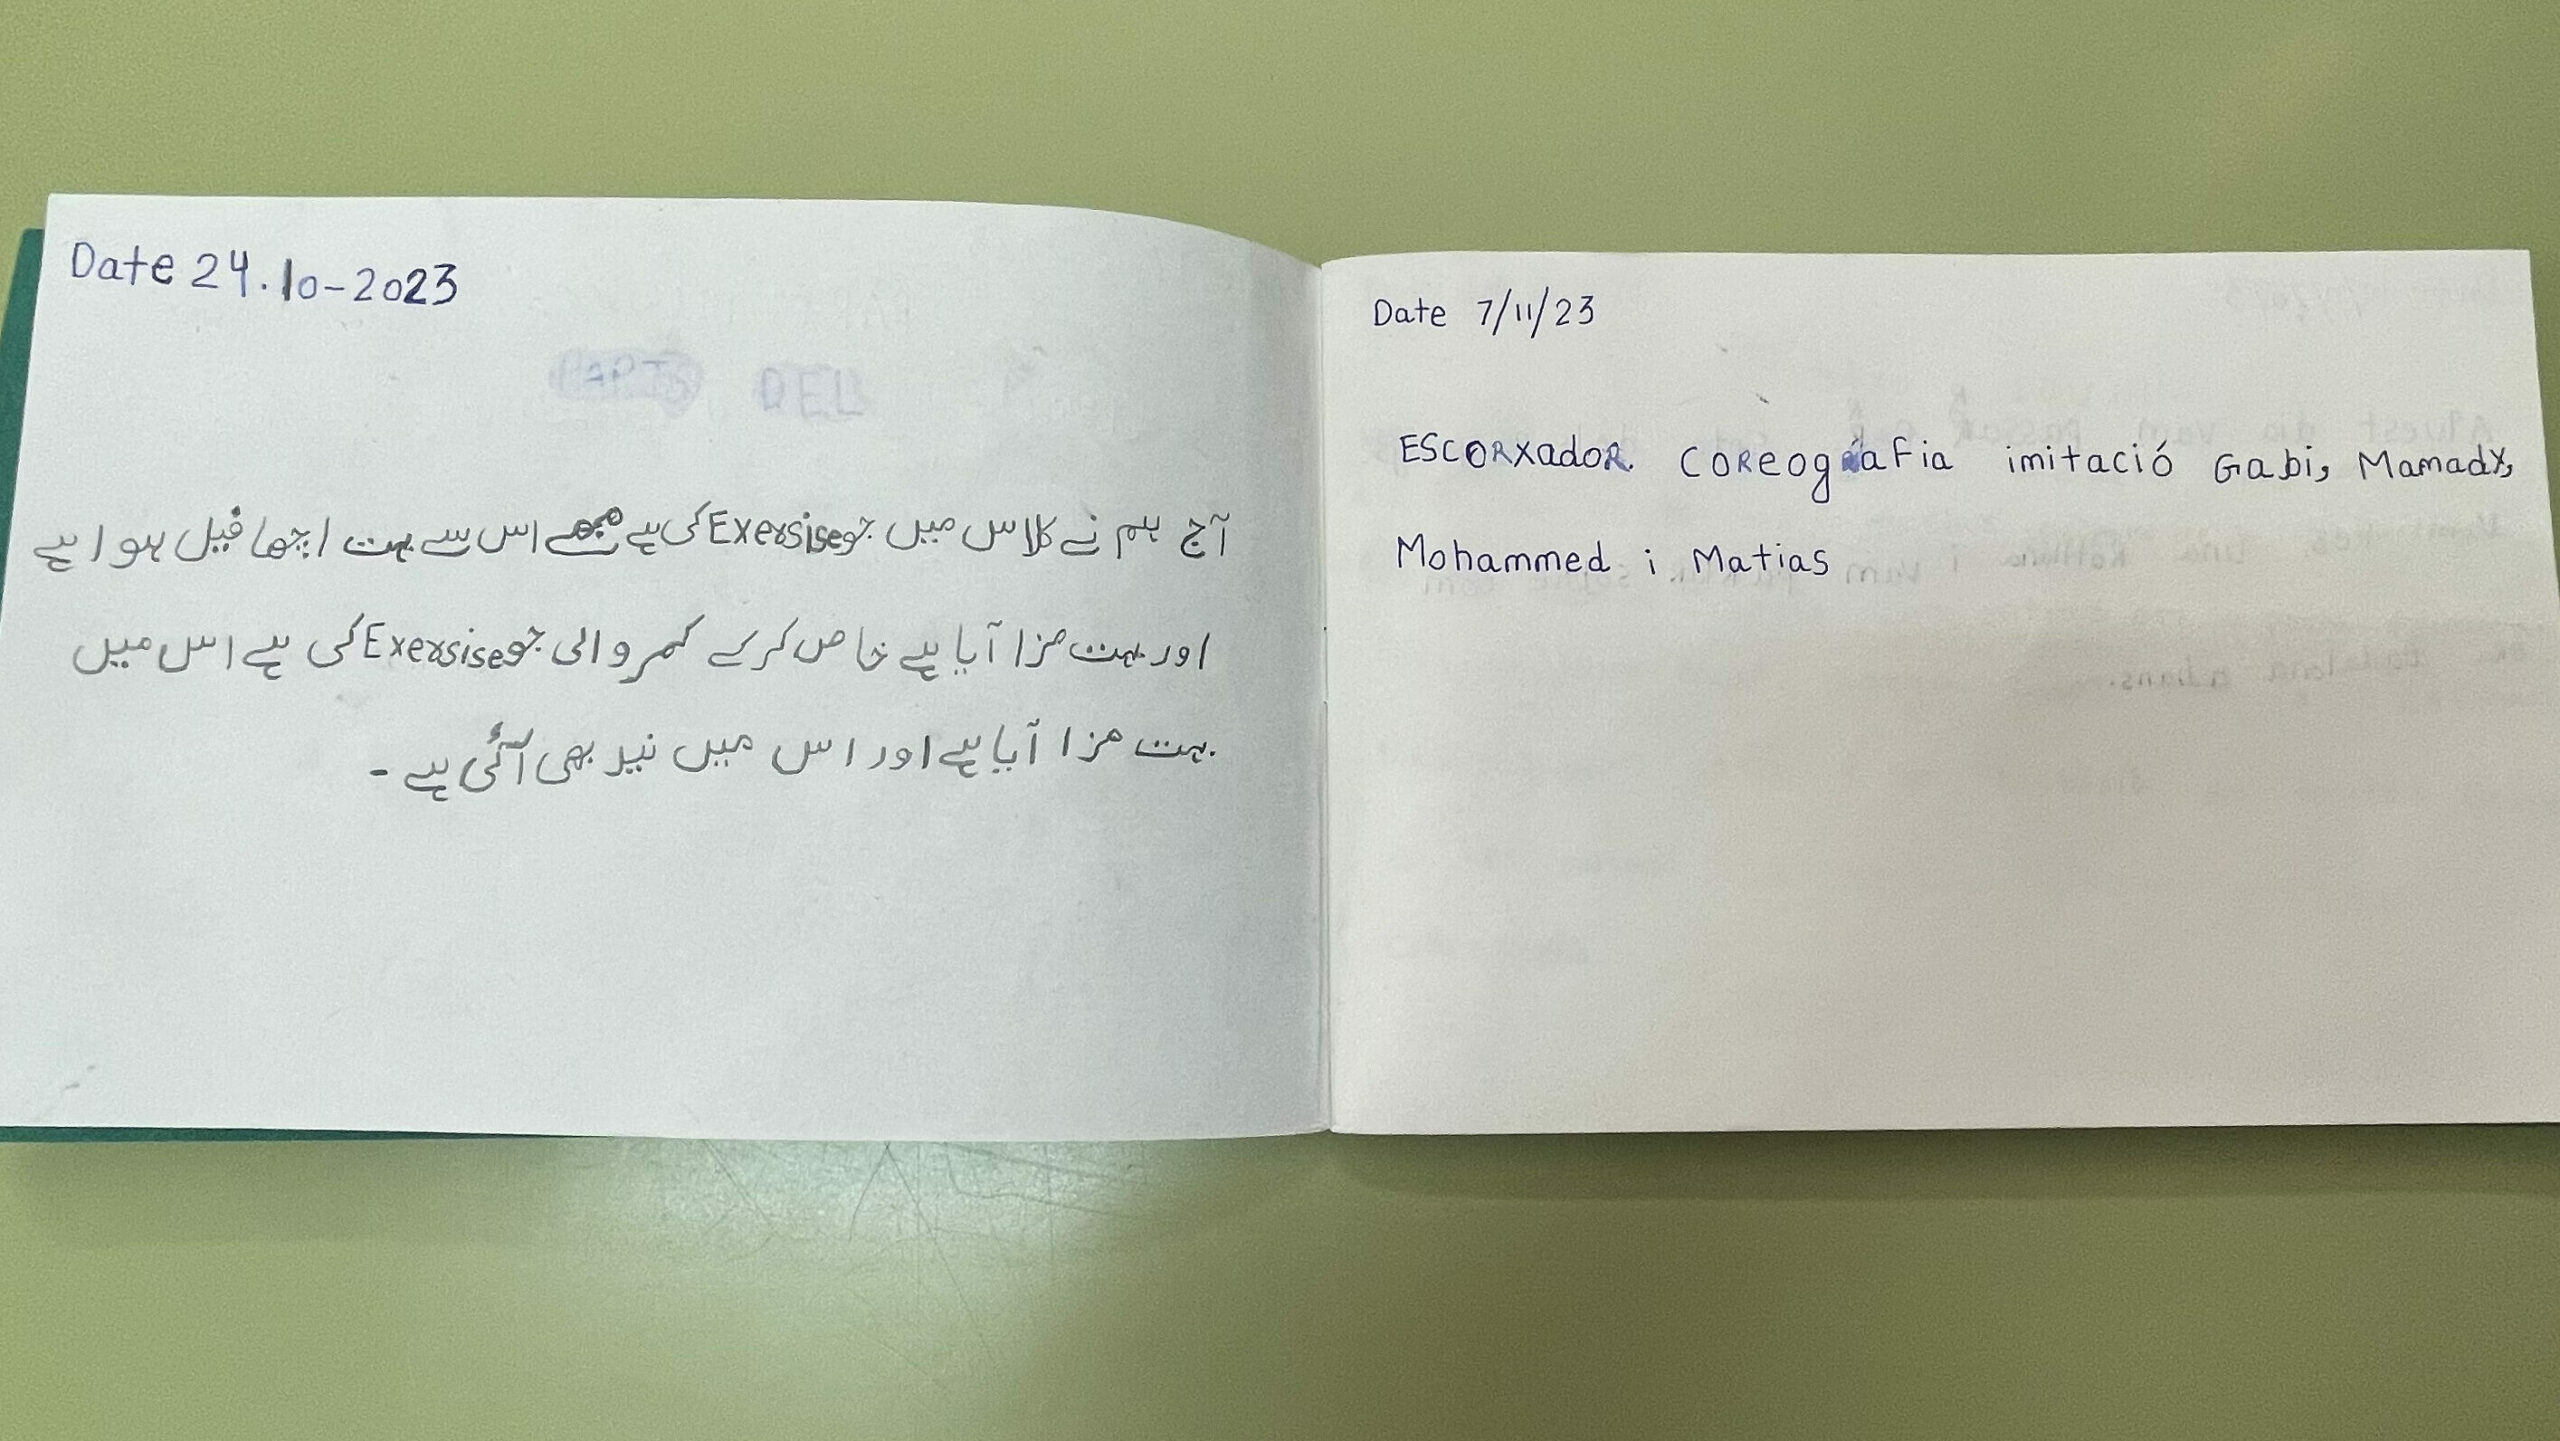 Date 24.10-2023
آج ہم نے کلاس میں جو Exersise کی ہے مجھے اس سے بہت اچھا فیل ہوا ہے
اور بہت مزا آیا ہے خاص کر کے کمر والی جو Exersise کی ہے اس میں
بہت مزا آیا ہے اور اس میں نید بھی آئی ہے -
Date 7/11/23
ESCORXadoR. COReografia imitació Gabi, Mamady,
Mohammed i Matias